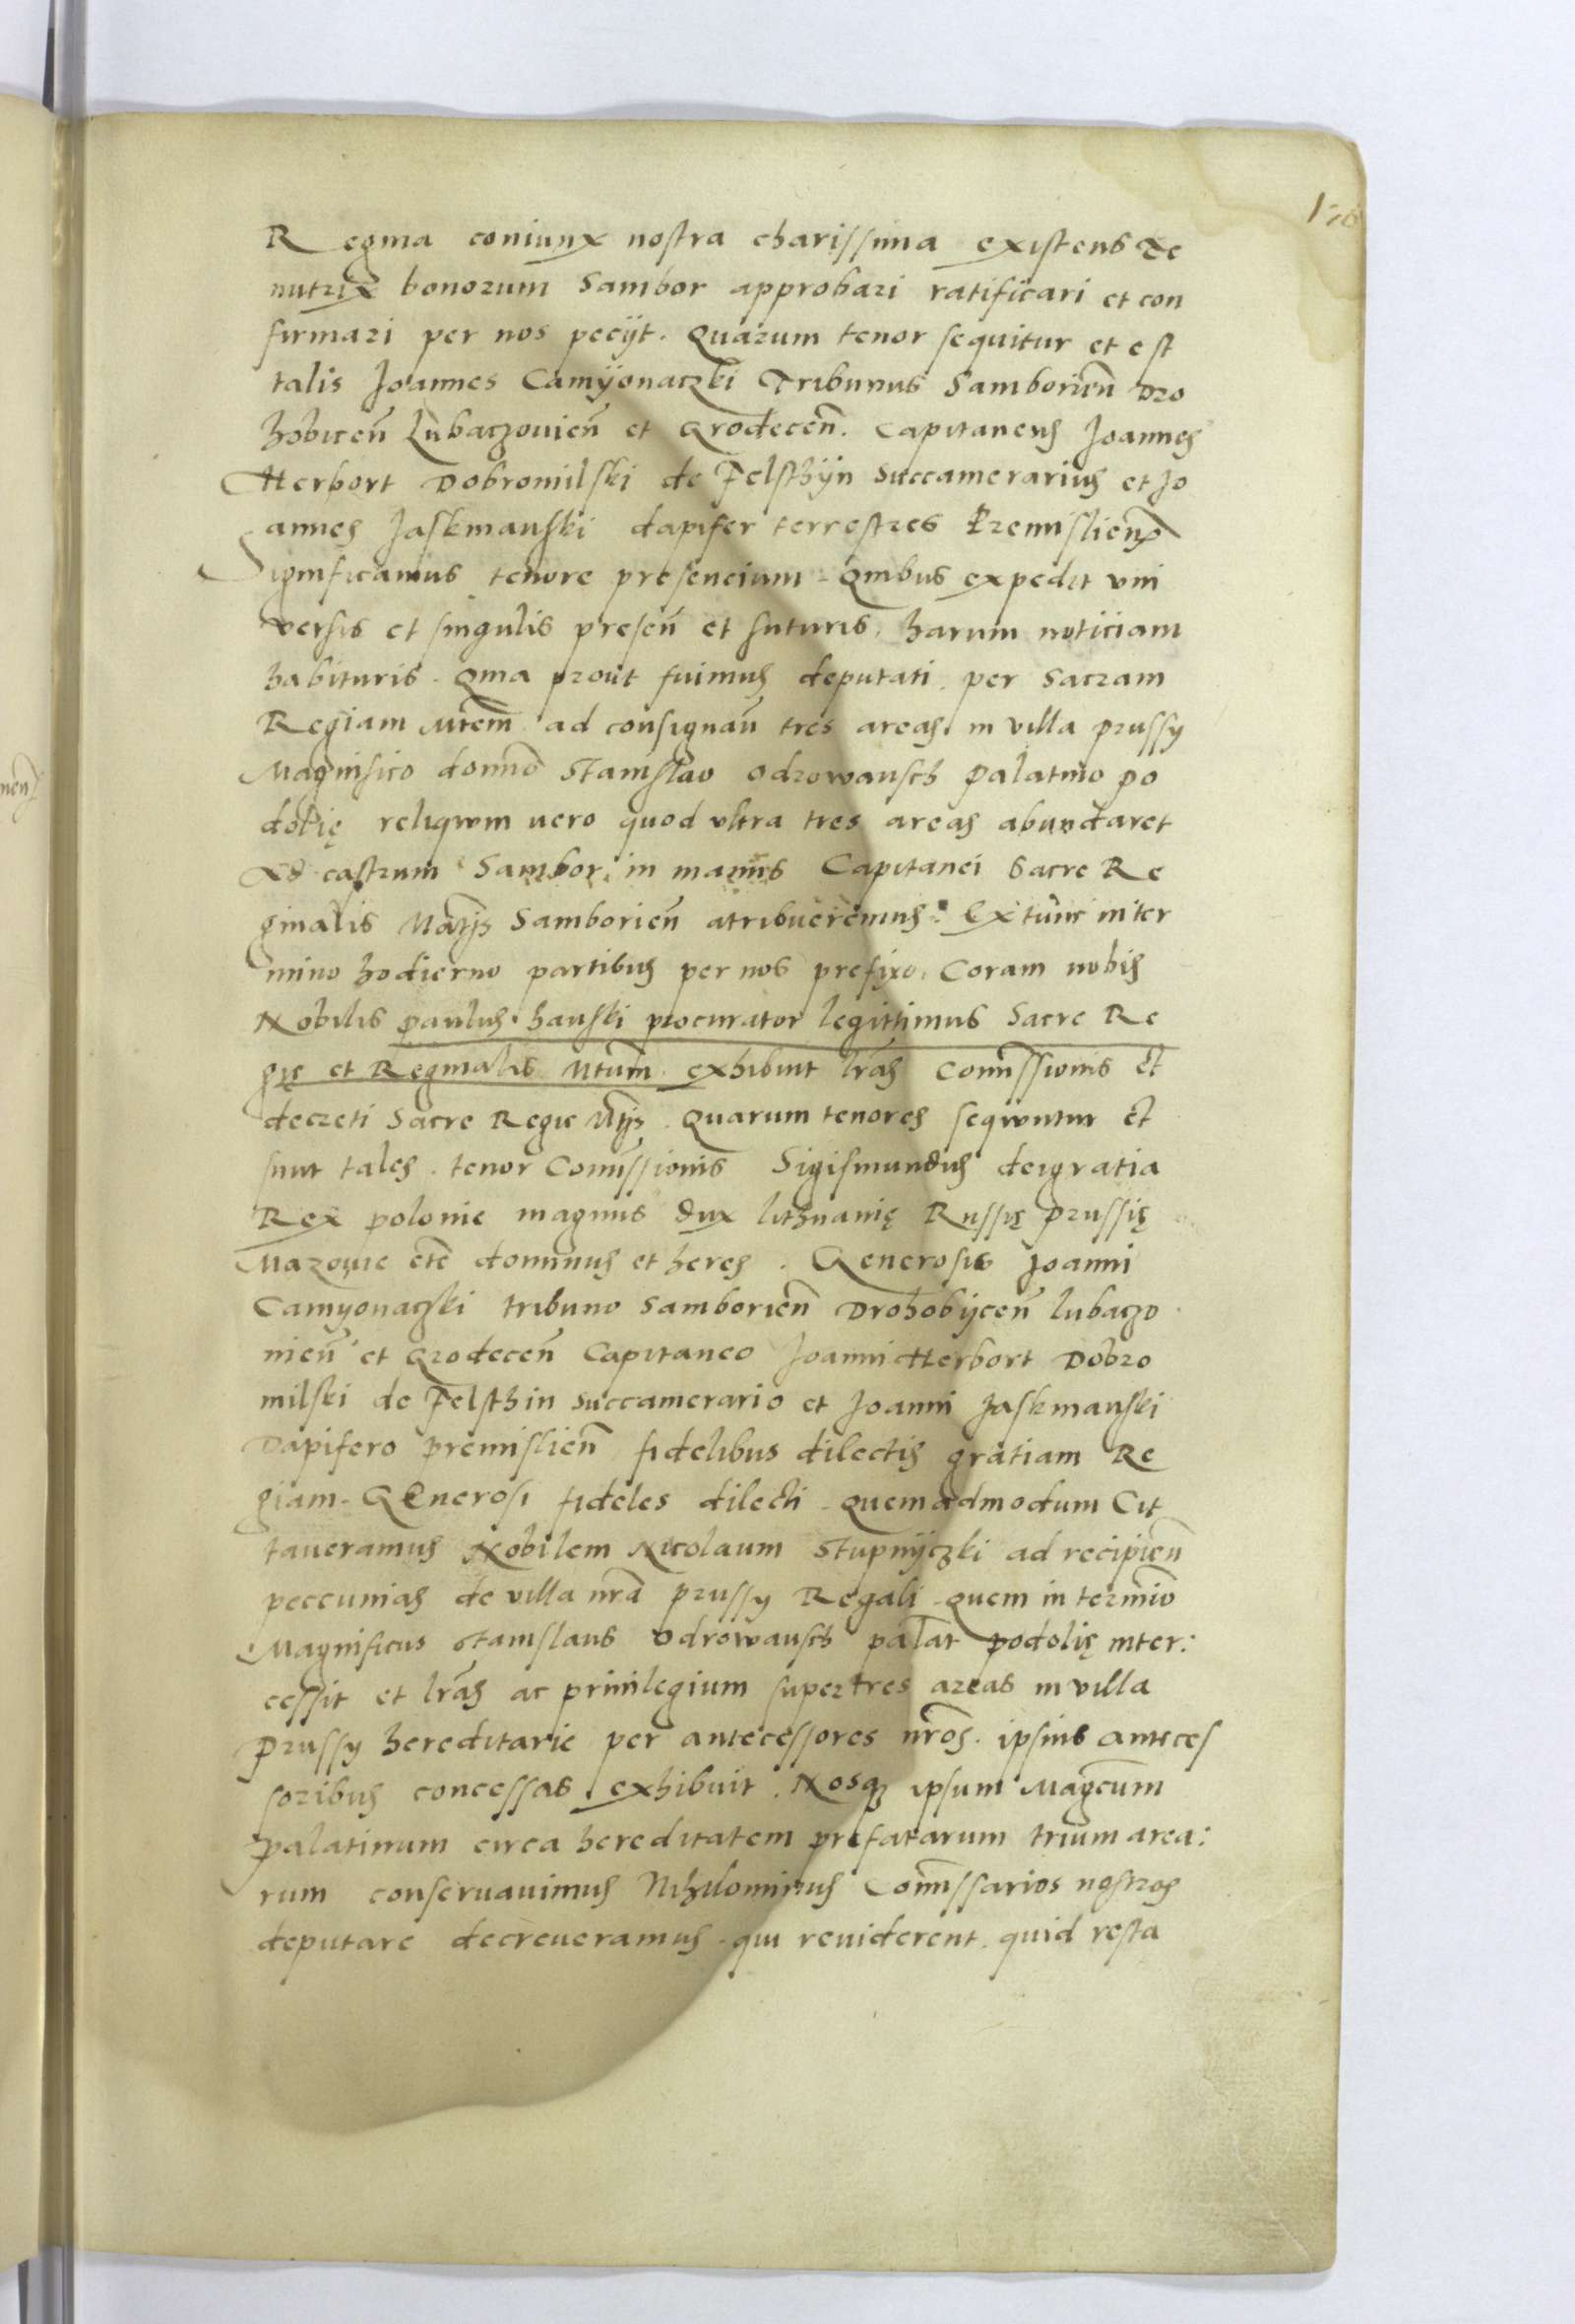 Regina coniunx nostra charissima existens Te
nutrix bonorum Sambor approbari ratificari et con
firmari per nos pecijt. Quarum tenor sequitur et est
talis Joannes Camÿonaczki Tribunus Samborień Dro
hobiceń Lubaczovień et Grodeceń. Capitaneus Joannes
Herbort Dobromilski de Felsthÿn Succamerarius et Jo
annes Jaskmanski dapifer terrestres Premislień
Significamus tenore presencium. Quibus expedit vni
versis et singulis preseń et futuris, harum noticiam
habituris. Quia prout fuimus deputati. per Sacram
Regiam Mtem ad consignań tres areas. in villa prussy
Magnifico domno Stanislao Odrowansch palatino po
dolię reliqwm uero quod vltra tres areas abundaret
Ad castrum Sambor. in manus Capitanei Sacre Re
ginalis Mattjs Samborień atribueremus: Ex tunc in ter
mino hodierno partibus per nos prefixo. Coram nobis
Nobilis paulus. hanski procurator legittimus Sacre Re
gię et Reginalis Mtum. exhibuit lras Comissionis Et
decreti Sacre Regie Mtjs. Quarum tenores seqwntur Et
sunt tales. tenor Comissionis Sigismundus dei gratia
Rex polonie magnus dux lithuanię Russię prussię
Mazouie etc dominus et heres. Generosis Joanni
Camyonaczki tribuno Samborień Drohobÿceń lubaczo
nień et Grodeceń Capitaneo Joanni Herbort Dobro
milski de Felsthin Succamerario et Joanni Jaskmanski
Dapifero premislień fidelibus dilectis gratiam Re
giam. GEnerosi fideles dilecti. quemadmodum Cit
taueramus Nobilem Nicolaum Stupnÿczki ad recipień
peccunias de villa nra prussy Regali. quem in termio
Magnificus Stanislaus Odrowansch palat podolię inter:
cessit et lras ac priuilegium super tres areas in villa
Prussy hereditarie per antecessores nros. ipsius anteces
soribus concessas. exhibuit. Nosq ipsum Magcum
palatinum circa hereditatem prefatarum trium area:
rum conseruauimus Nihilominus Comissarios nostros
deputare decreueramus. qui reuiderent. quid resta